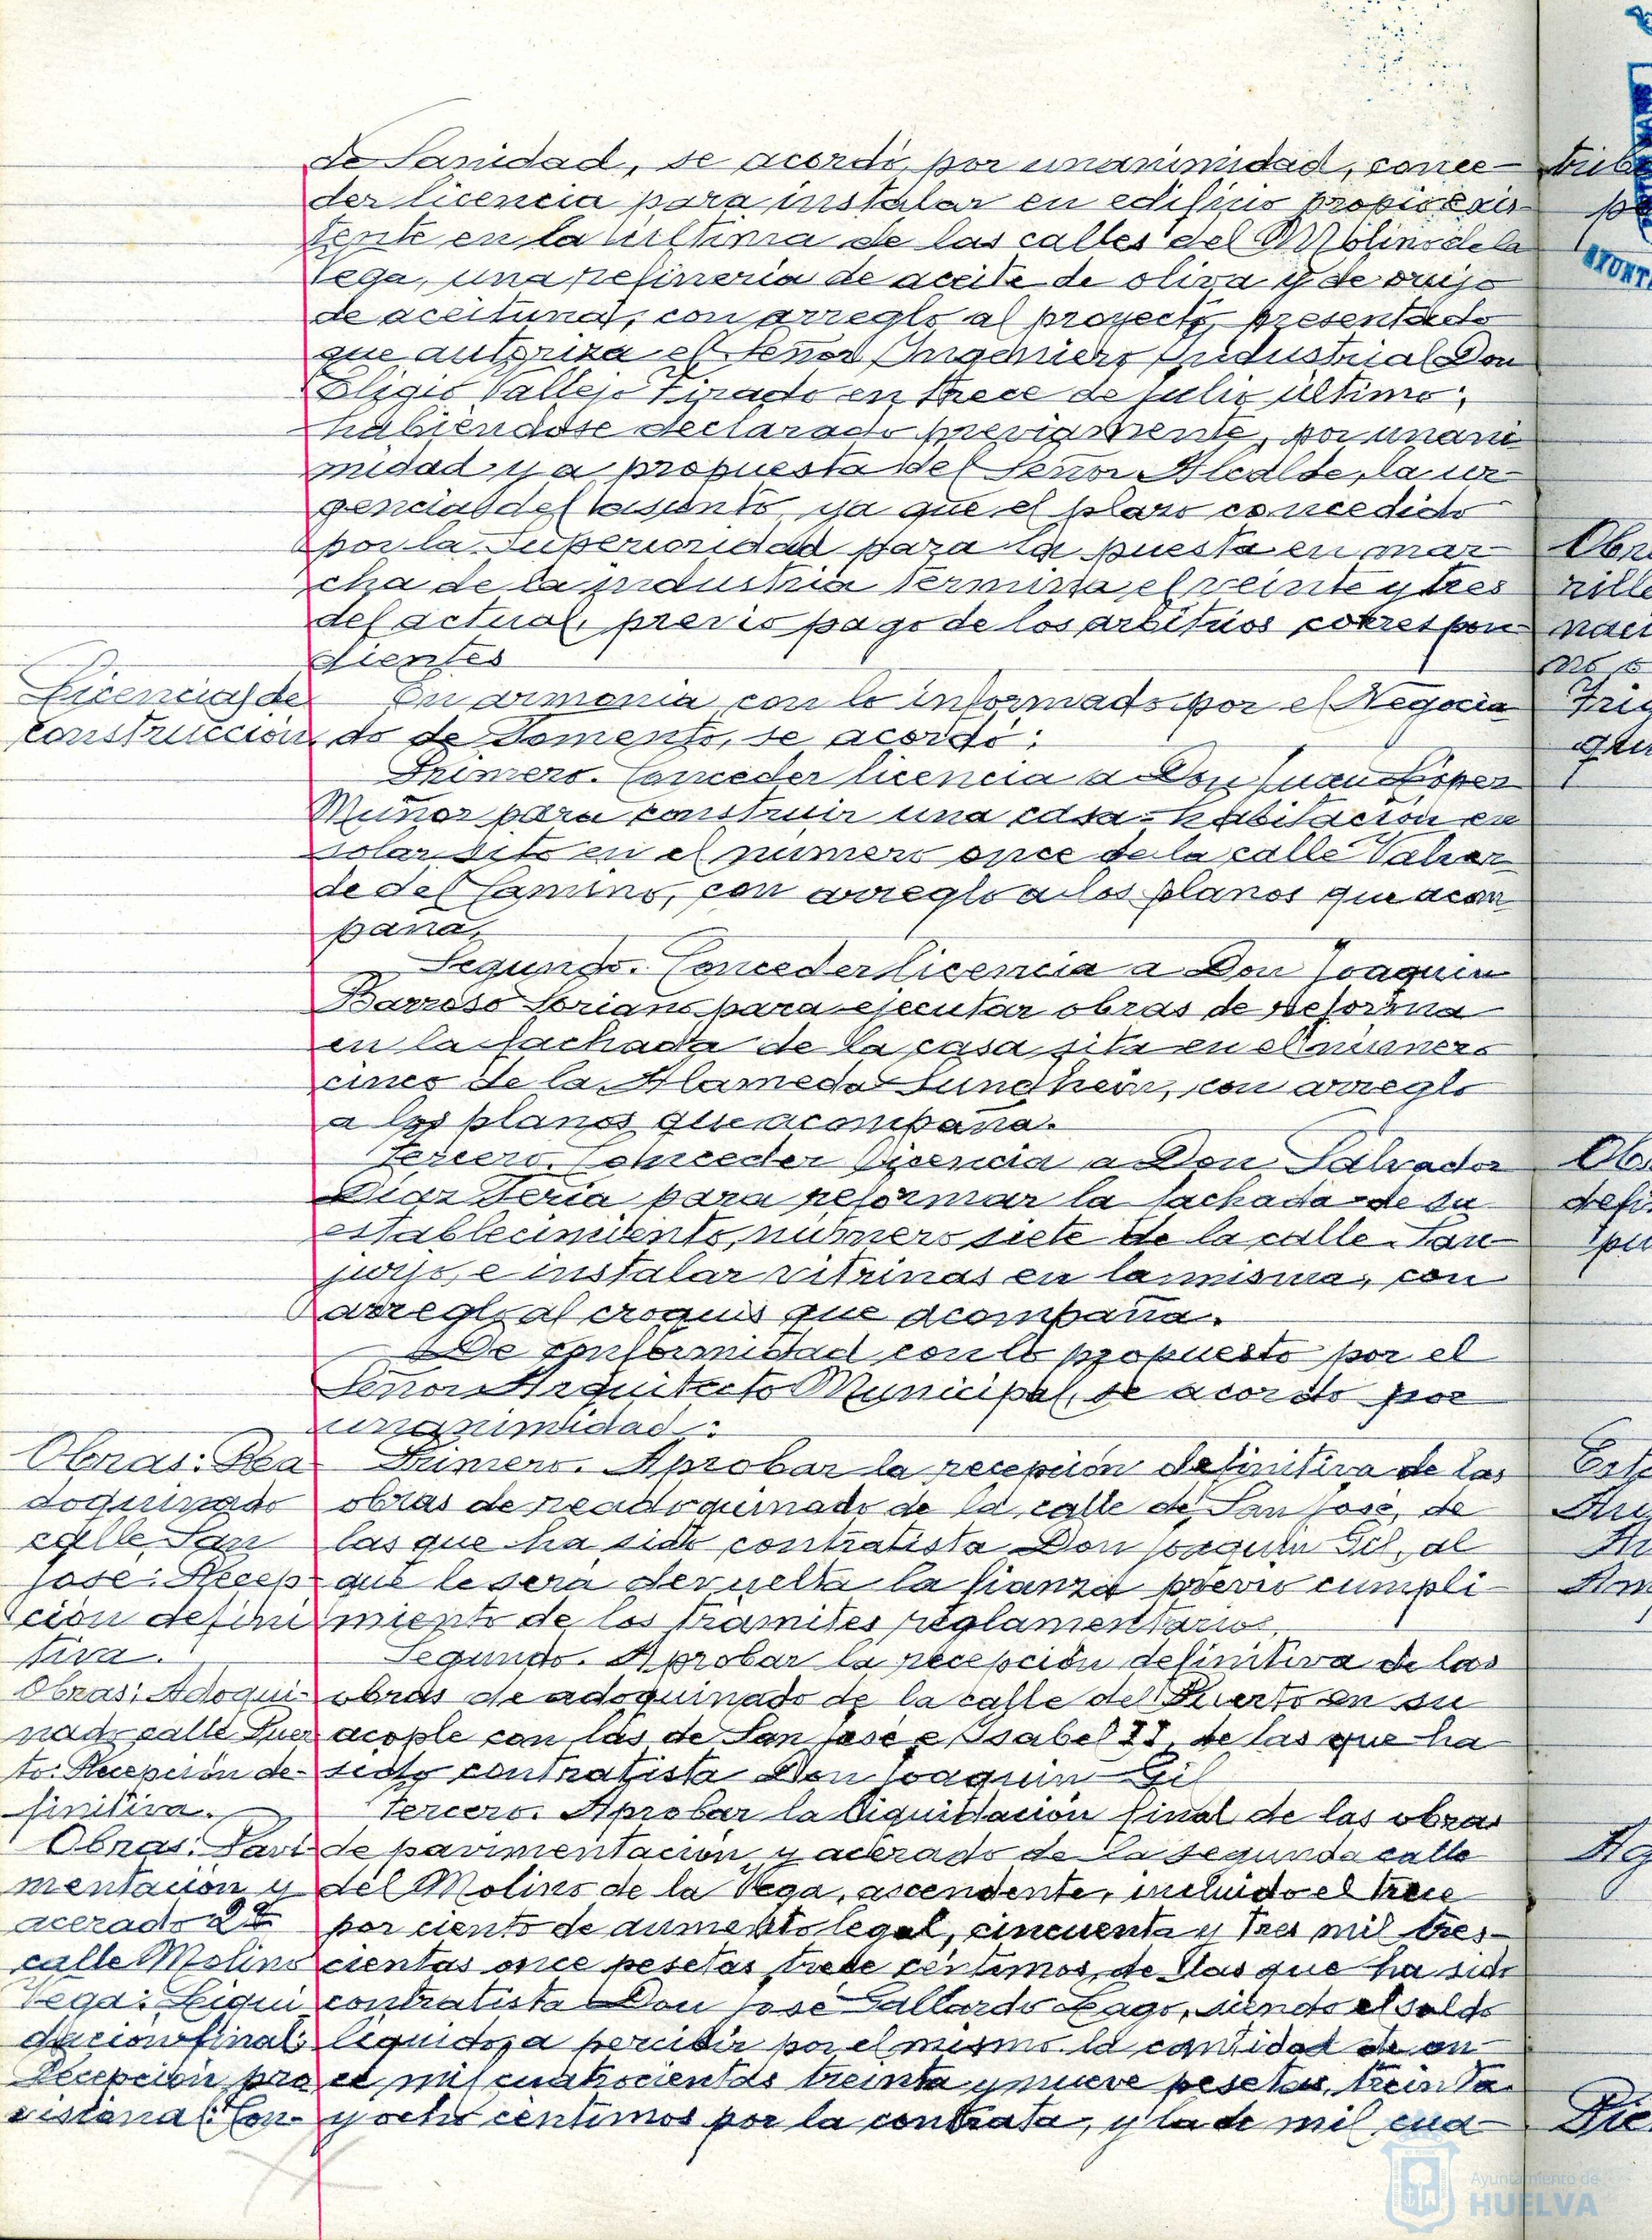 de Sanidad, se acordó, por unanimidad, conce-
der licencia para instalar en edificio propio exis-
tente en la última de las calles del Molino de la
Vega, una refinería de aceite de oliva y de orujo
de aceituna, con arreglo al proyecto presentado
que autoriza el Señor Ingeniero Industrial Don
Eligio Vallejo Tirado en trece de julio último;
habiéndose declarado previamente, por unani
midad y a propuesta del Señor Alcalde, la ur-
gencia del asunto ya que el plazo concedido
por la Superioridad para la puesta en mar-
cha de la industria termina el veinte y tres
del actual, previo pago de los arbitrios correspon-
dientes
Licencias de
construcción
En armonía con lo informado por el Negocia
do de Fomento, se acordó:
Primero. Conceder licencia a Don Juan López
Muñoz para construir una casa-habitación en
solar sito en el número once de la calle Valver
de del Camino, con arreglo a los planos que acom
paña.
Segundo. Conceder licencia a Don Joaquín
Barroso Soriano para ejecutar obras de reforma
en la fachada de la casa sita en el número
cinco de la Alameda Sundheim, con arreglo
a los planos que acompaña.
Tercero. Conceder licencia a Don Salvador
Díaz Feria para reformar la fachada de su
establecimiento, número siete de la calle San-
jurjo, e instalar vitrinas en la misma, con
arreglo al croquis que acompaña.
De conformidad con lo propuesto por el
Señor Arquitecto Municipal, se acordó por
unanimidad:
Obras: Rea
doquinado
calle San
José: Recep
ción defini
tiva.
Primero. Aprobar la recepción definitiva de las
obras de readoquinado de la calle de San José, de
las que ha sido contratista Don Joaquín Gil, al
que le será devuelta la fianza previo cumpli-
miento de los trámites reglamentarios.
Obras: Adoqui-
nado calle Puer
to: Recepción de-
finitiva.
Segundo. Aprobar la recepción definitiva de las
obras de adoquinado de la calle del Puerto en su
acople con las de San José e Isabel II, de las que ha
sido contratista Don Joaquín Gil
Obras: Pavi
mentación y
acerado 2ª
calle Molino
Vega: Liqui
dación final:
Recepción pro
visional: Con-
Tercero. Aprobar la liquidación final de las obras
de pavimentación y acerado de la segunda calle
del Molino de la Vega, ascendente, incluido el trece
por ciento de aumento legal, cincuenta y tres mil tres-
cientas once pesetas trece céntimos, de las que ha sido
contratista Don José Gallardo Lago, siendo el saldo
líquido a percibir por el mismo la cantidad de on-
ce mil cuatrocientas treinta y nueve pesetas, treinta
y ocho céntimos por la contrata, y la de mil cua-
Ayuntamiento de
HUELVA